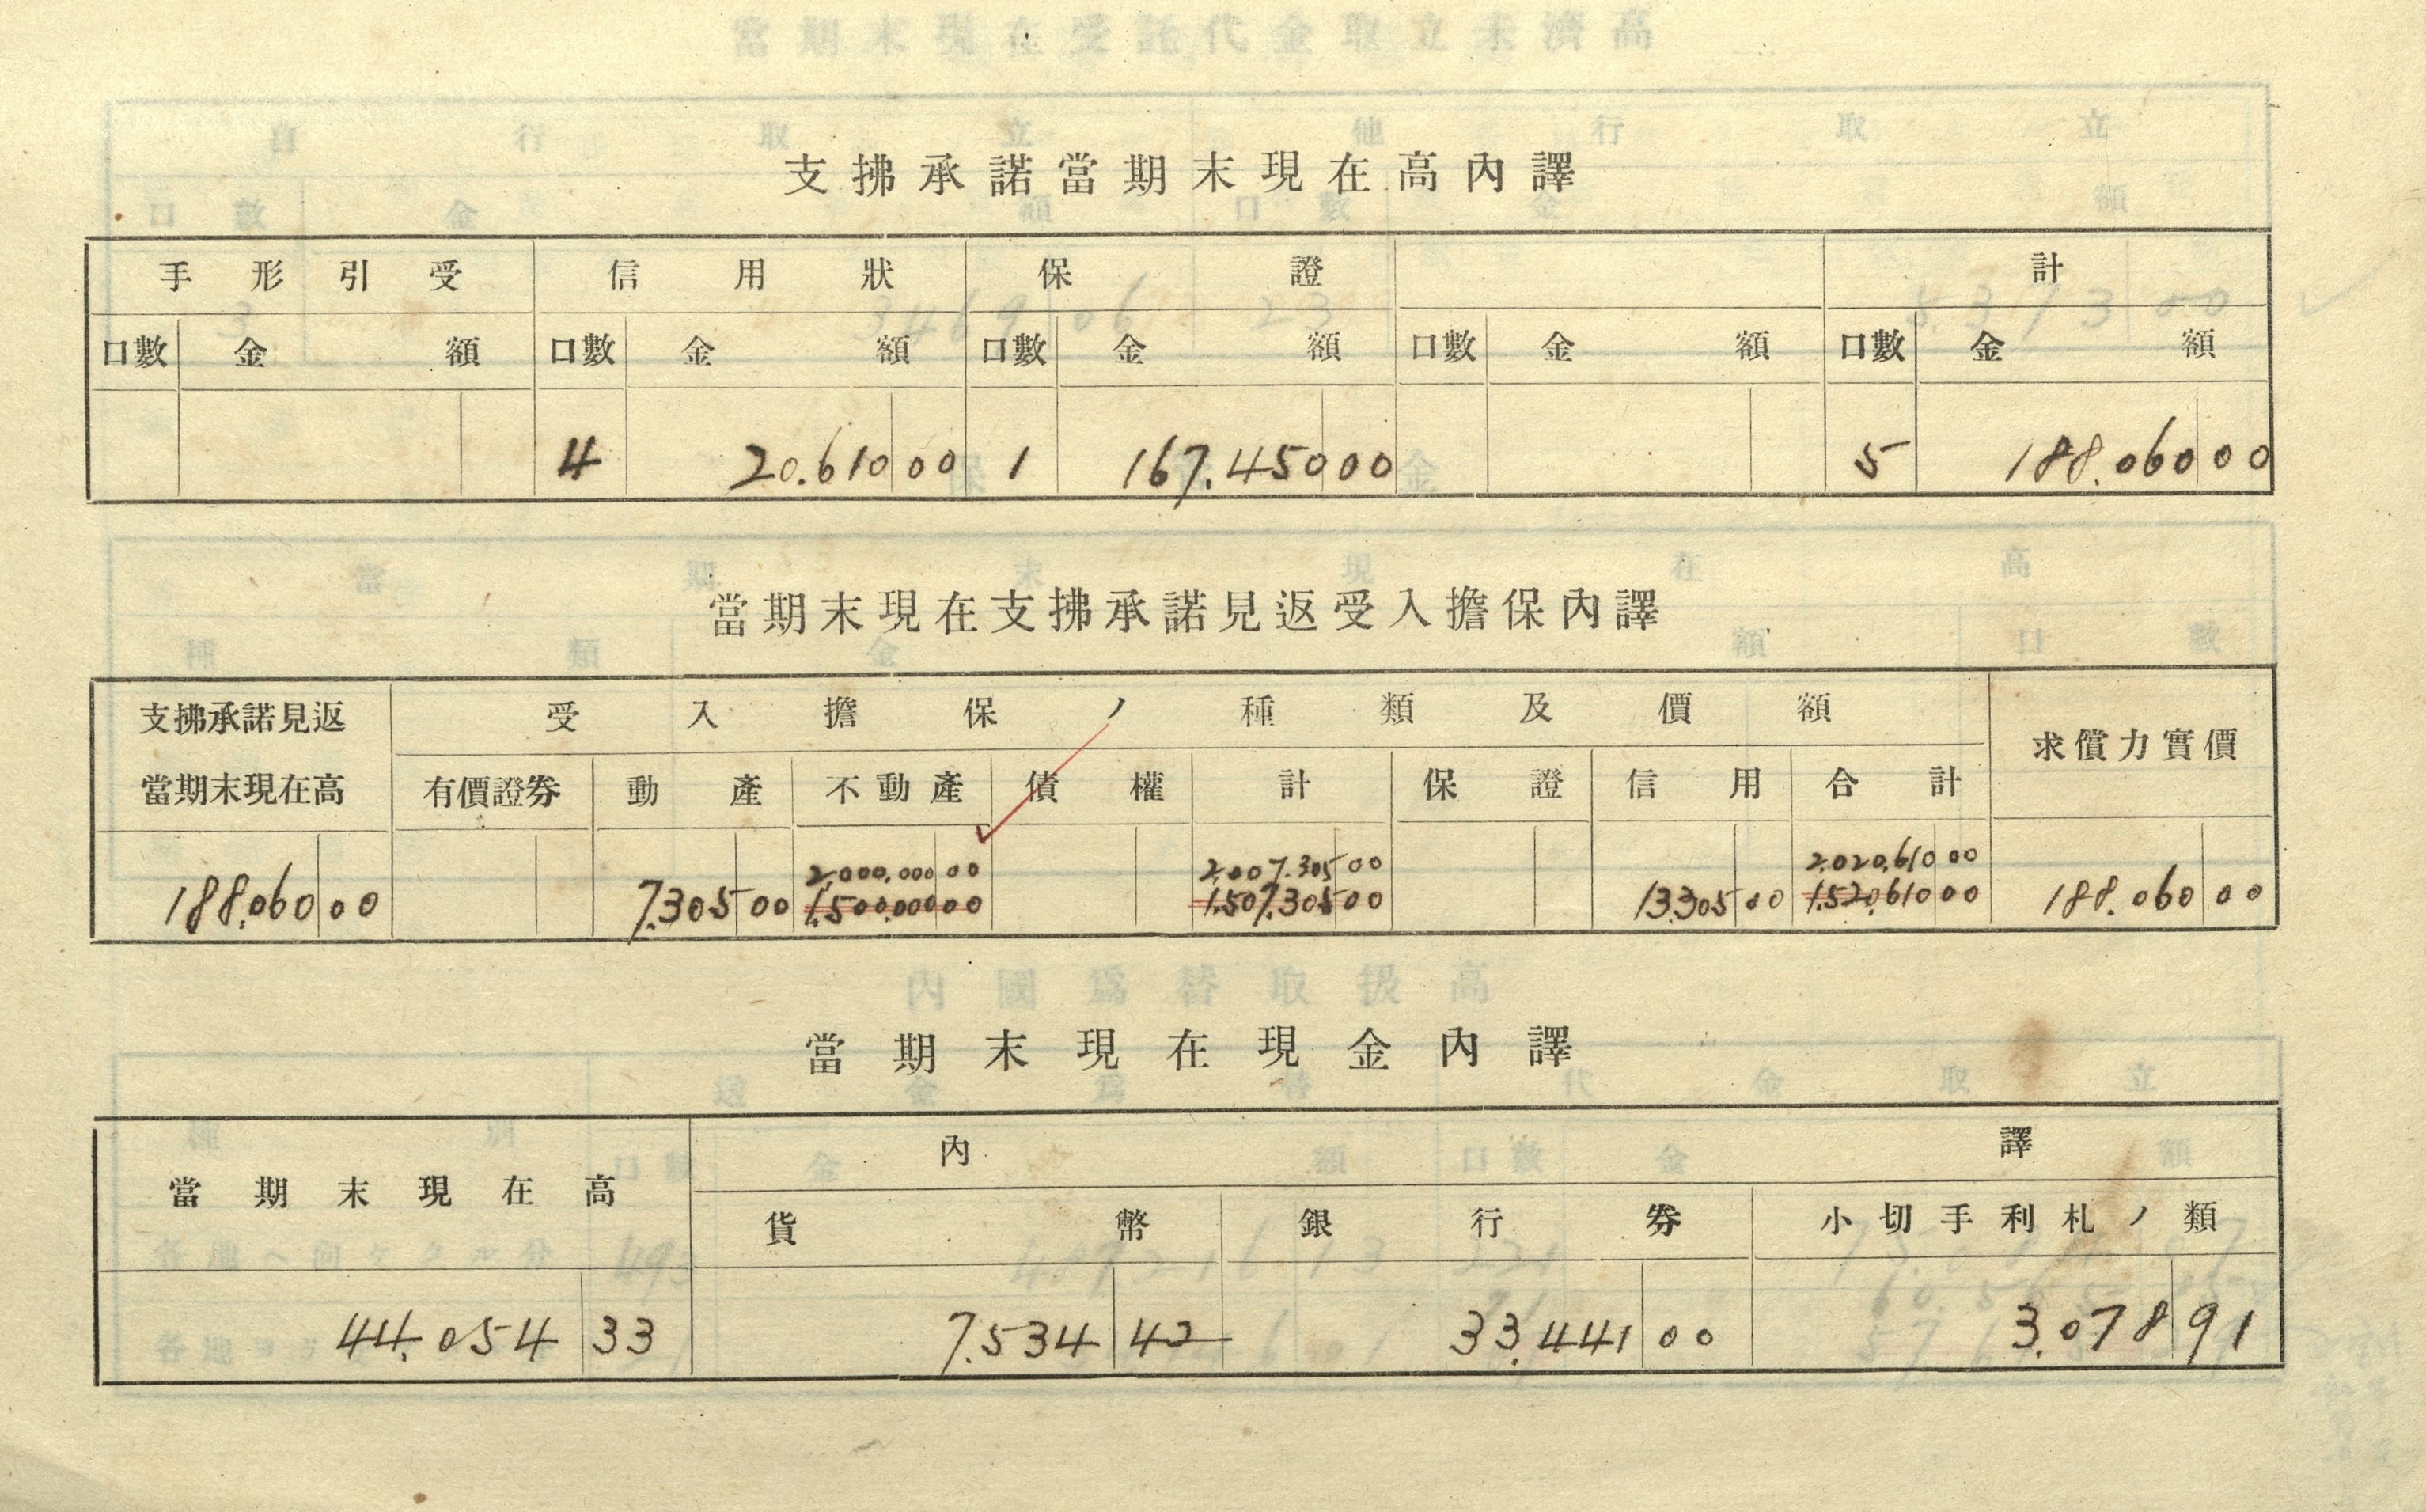 支拂承諾當期末現在高內譯
手形引受 信用狀 保證 計
口數 金額 口數 金額 口數 金額 口數 金額 口數 金額
4 20.610 00 1 167.450 00 5 188.060 00
當期末現在支拂承諾見返受入擔保內譯
支拂承諾見返 受入擔保ノ種類及價額 求償力實價
當期末現在高 有價證券 動產 不動產 債權 計 保證 信用 合計
2,000,000 00 2,007.305 00 2,020,610 00
188.060 00 7.305 00 1,500,000 00 1,507.305 00 13.305 00 1,520,610 00 188.060 00
當期末現在現金內譯
當期末現在高 內譯
貨幣 銀行券 小切手利札ノ類
44.054 33 7.534 42 33.441 00 3.078 91